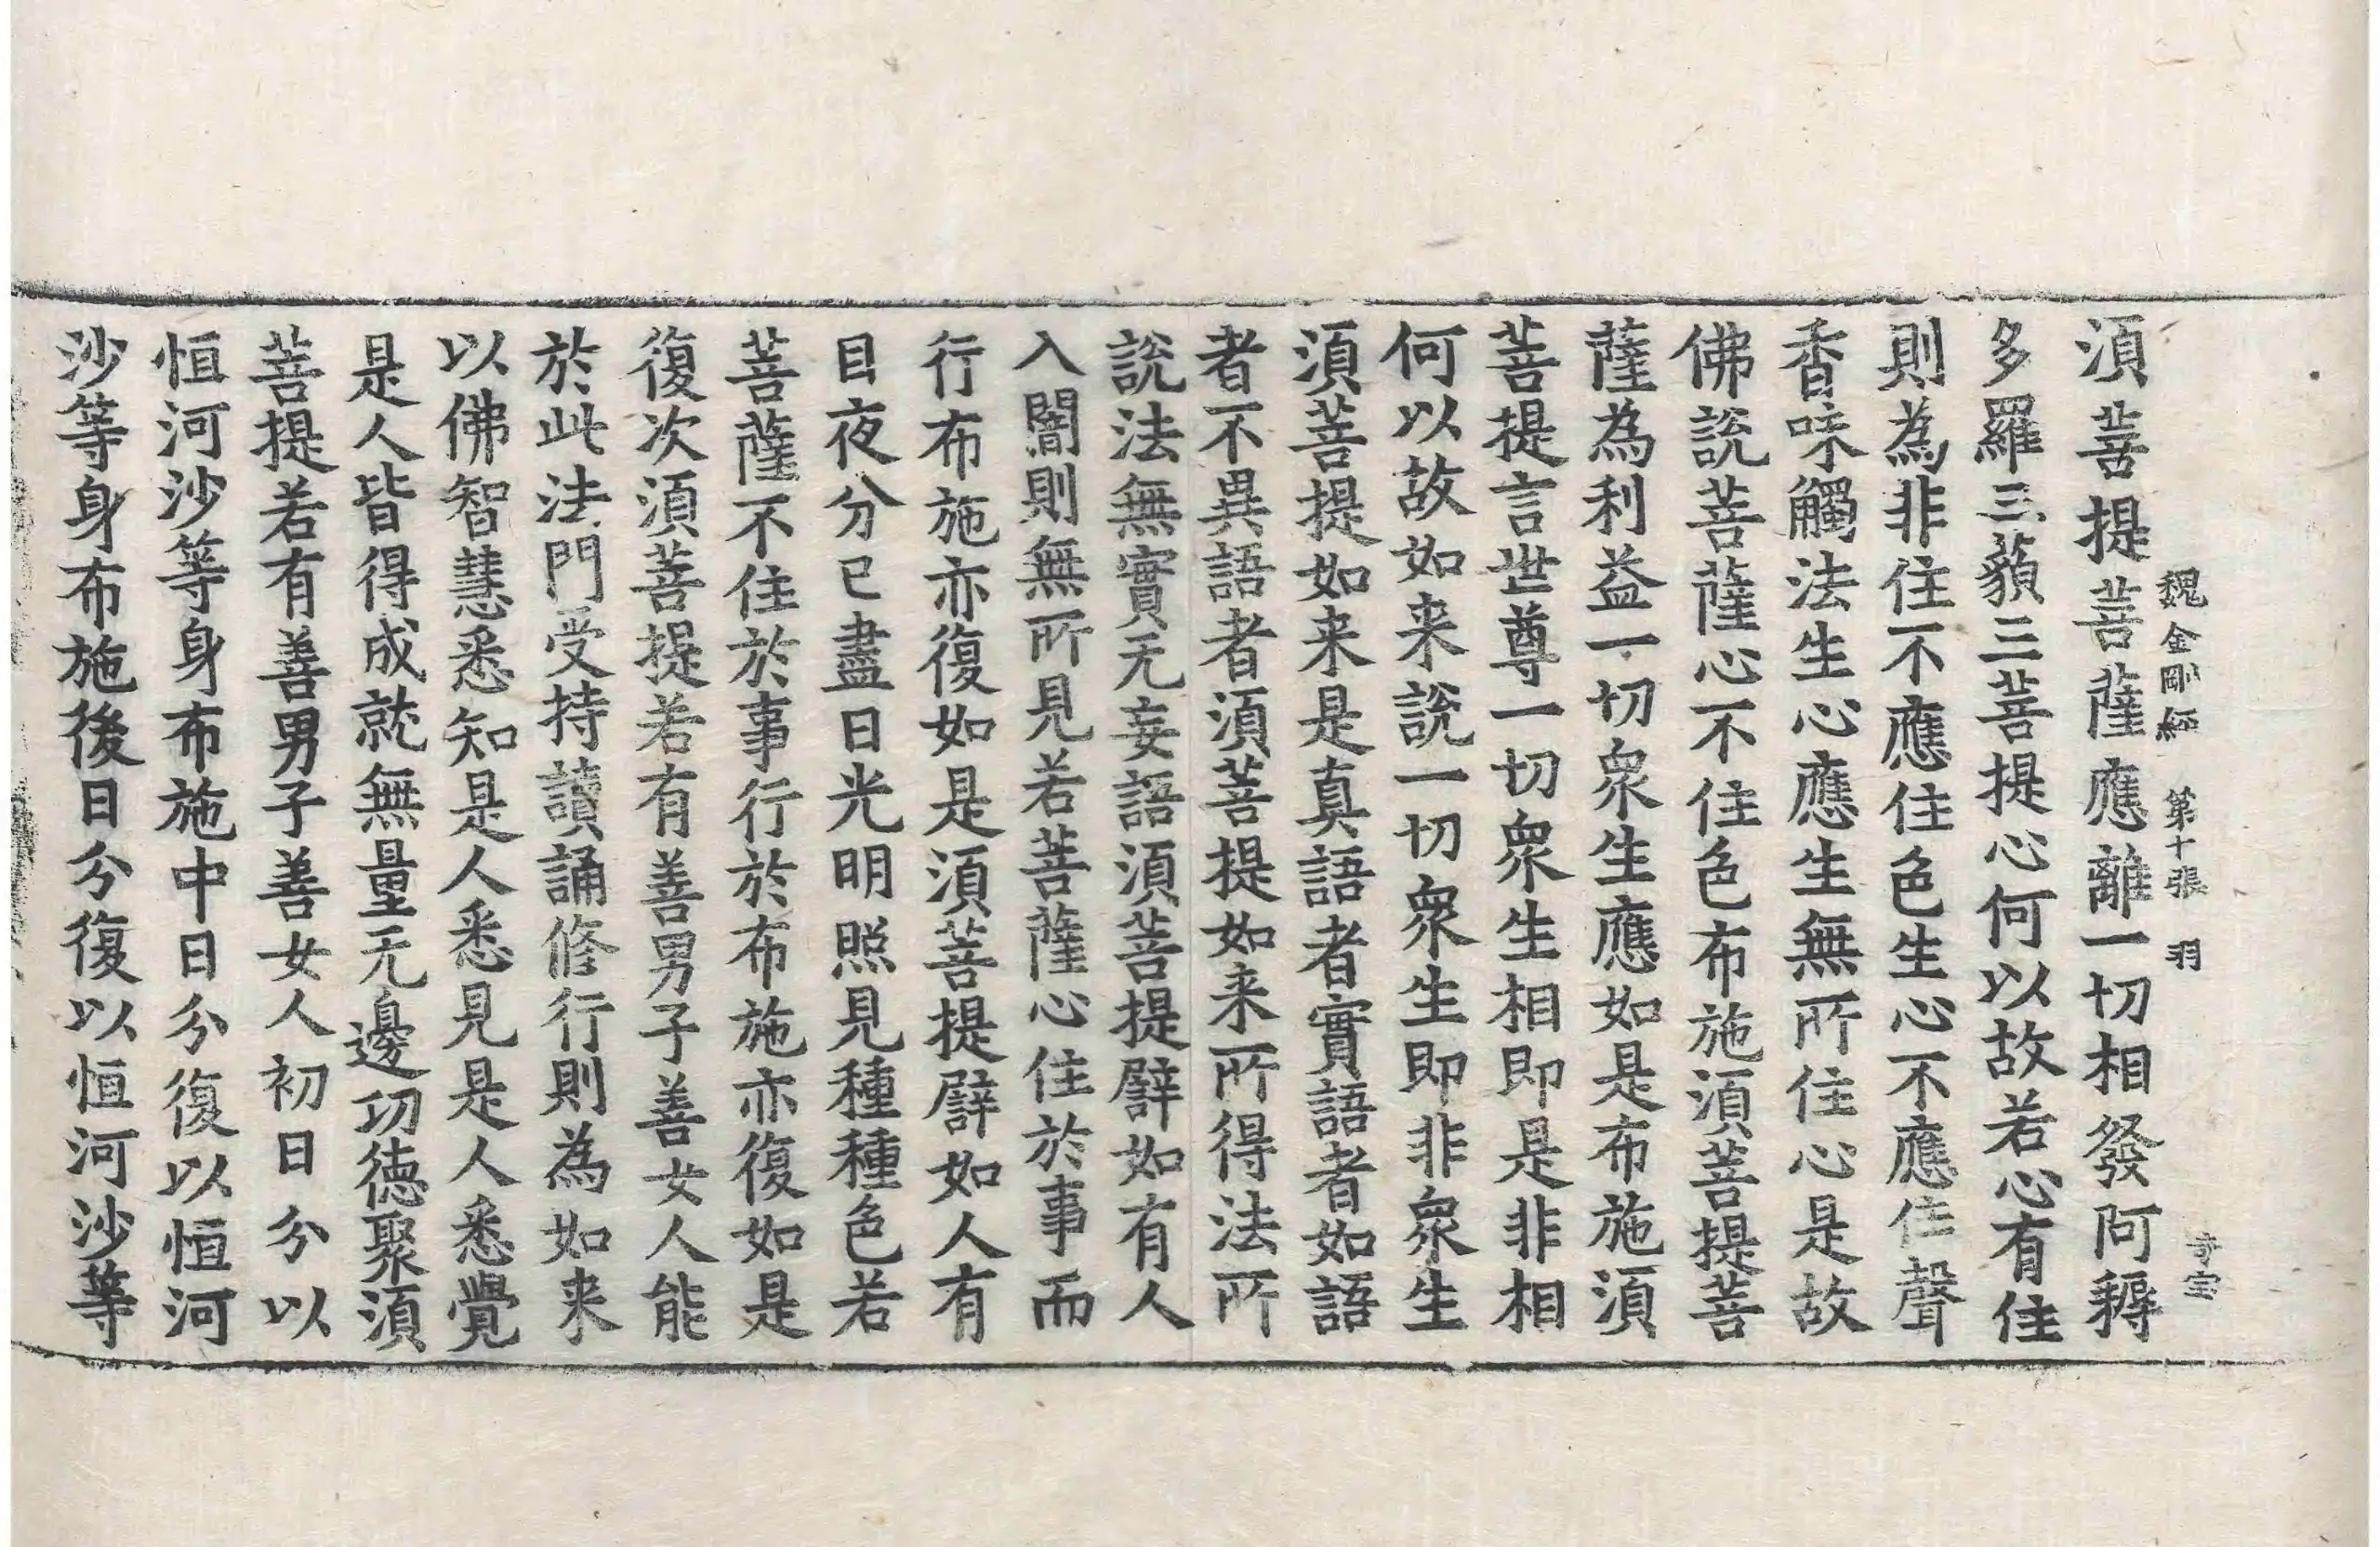 魏金剛經　第十張　羽
須菩提菩薩應離一切相發阿耨
多羅三藐三菩提心何以故若心有住
則為非住不應住色生心不應住聲
香味觸法生心應生無所住心是故
佛說菩薩心不住色布施須菩提菩
薩為利益一切衆生應如是布施須
菩提言世尊一切衆生相即是非相
何以故如来說一切衆生即非衆生
須菩提如来是真語者實語者如語
者不異語者須菩提如来所得法所
說法無實无妄語須菩提譬如有人
入闇則無所見若菩薩心住於事而
行布施亦復如是須菩提譬如人有
目夜分已盡日光明照見種種色若
菩薩不住於事行於布施亦復如是
復次須菩提若有善男子善女人能
於此法門受持讀誦修行則為如来
以佛智慧悉知是人悉見是人悉覺
是人皆得成就無量无邊功德聚須
菩提若有善男子善女人初日分以
恒河沙等身布施中日分復以恒河
沙等身布施後日分復以恒河沙等